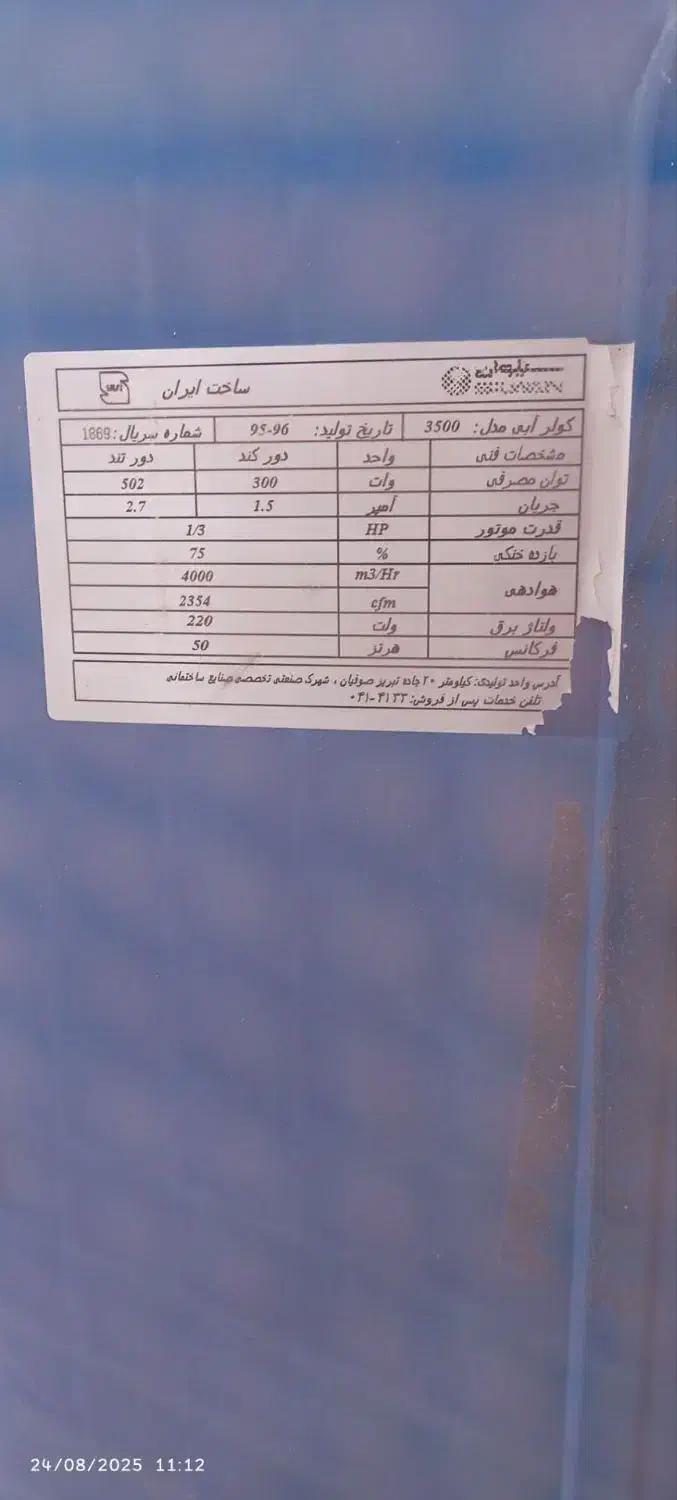 ساخت ایران
کولر آبی مدل: 3500 تاریخ تولید: 95-96 شماره سریال: 1869
مشخصات فنی واحد دور کند دور تند
توان مصرفی وات 300 502
جریان آمپر 1.5 2.7
قدرت موتور HP 1/3
بازده خنکی % 75
هوادهی m3/Hr 4000
cfm 2354
ولتاژ برق ولت 220
فرکانس هرتز 50
آدرس واحد تولیدی: کیلومتر ۲۰ جاده تبریز صوفیان ، شهرک صنعتی تخصصی صنایع ساختمانی
تلفن خدمات پس از فروش: ۴۱۳۳-۰۴۱
24/08/2025 11:12